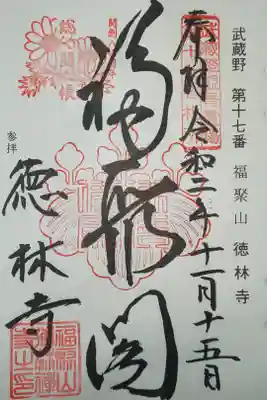 武蔵野 第十七番 福聚山 徳林寺
奉拝 令和二年十一月十五日
福聚閣
総開帳
参拝
徳林寺